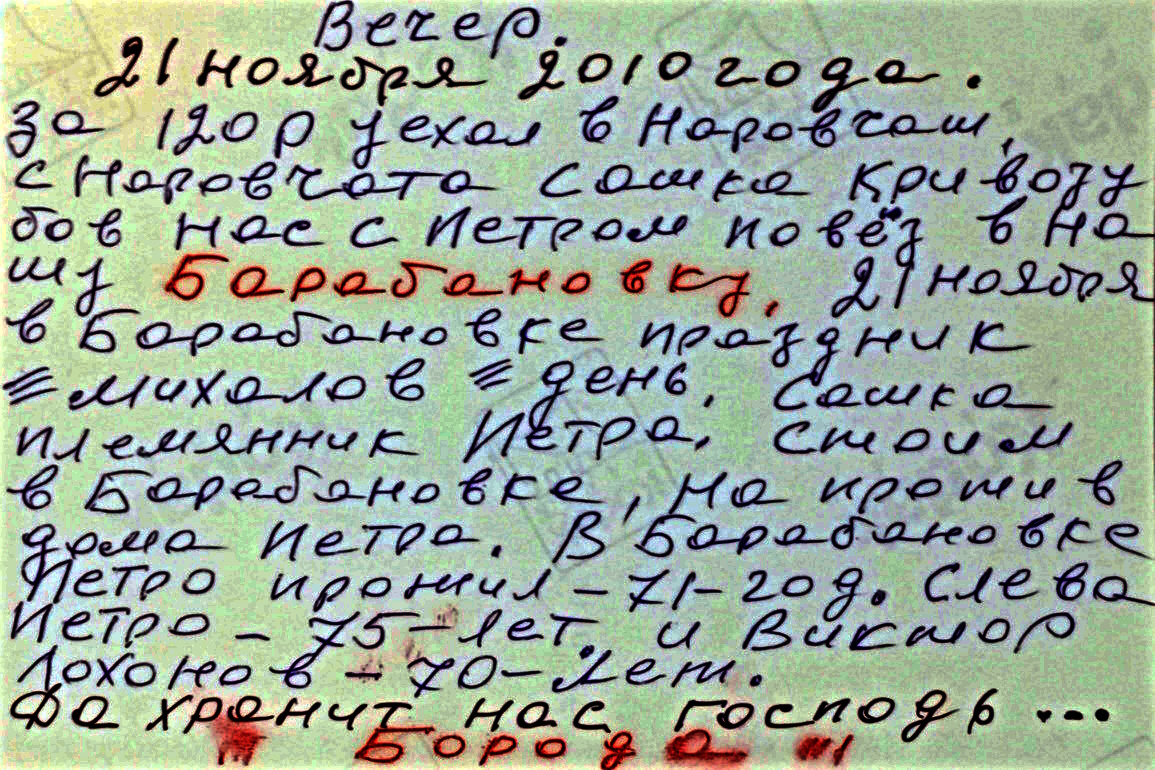 Вечер.
21 ноября 2010 года.
За 120 р уехал в Наровчат,
с Наровчата Сашка Кривозу
бов нас с Петром повёз в На
шу Барабановку, 21 ноября
в Барабановке праздник
= Михалов = день. Сашка
племянник Петра. Стоим
в Барабановке, на против
дома Петра. В Барабановке
Петро прожил - 71 - год. Слева
Петро - 75 - лет. и Виктор
Лохонов - 70 - лет.
Да хранит нас Господь ...
Борода